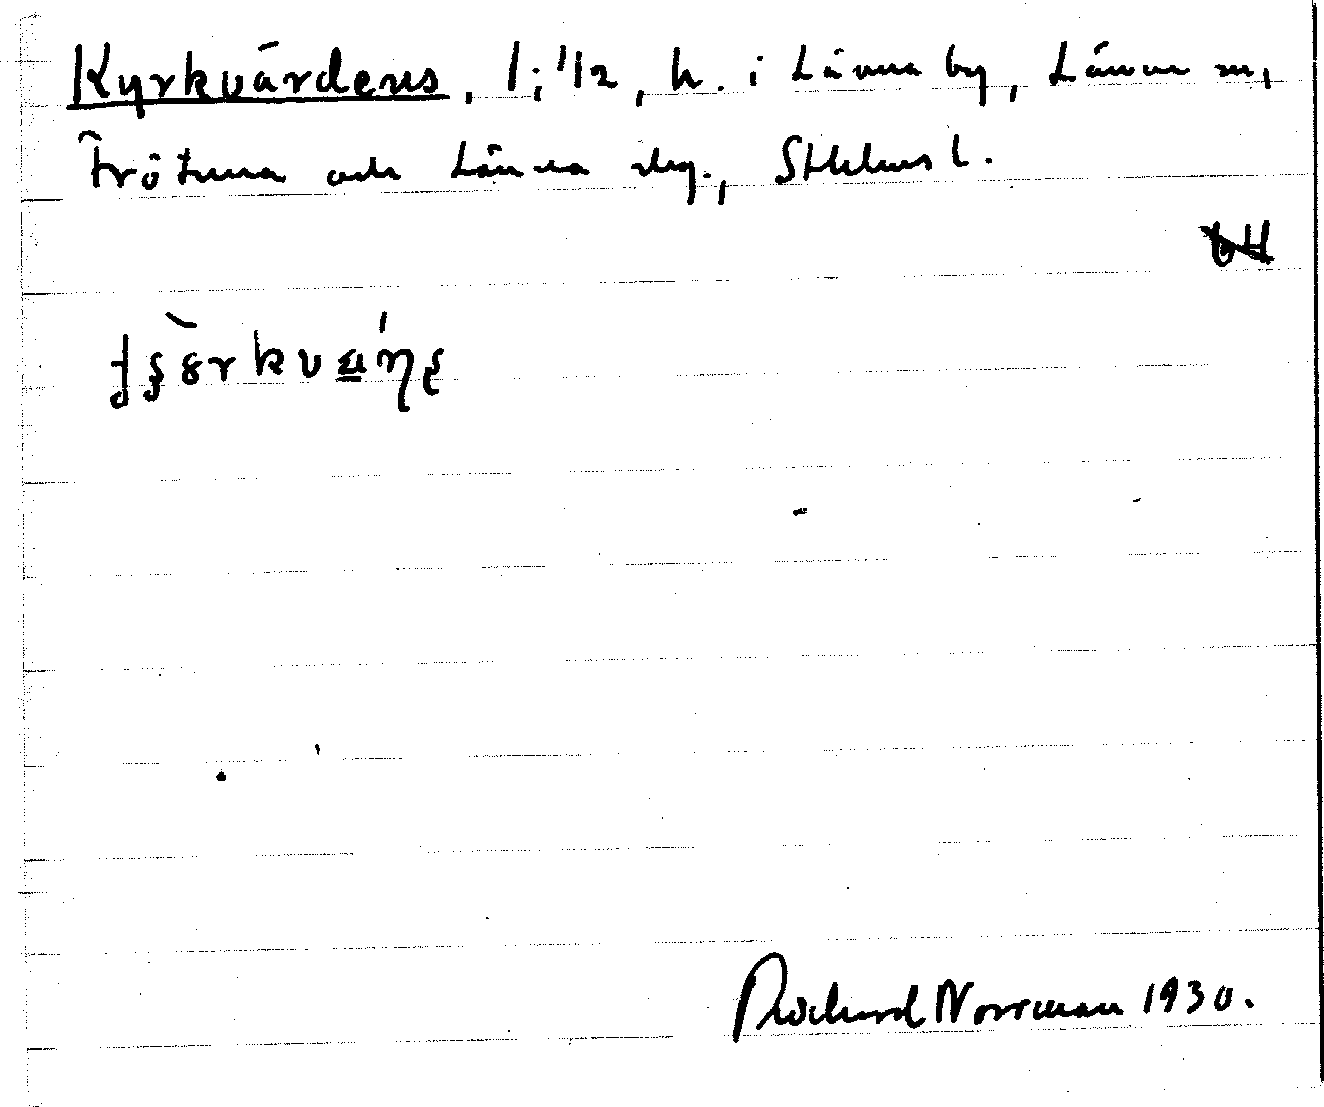 Kyrkvärdens, 1; 1/2, h. i Länna by, Länna sn,
Frötuna och Länna slg., Sthlms l.
Richard Norrman 1930.